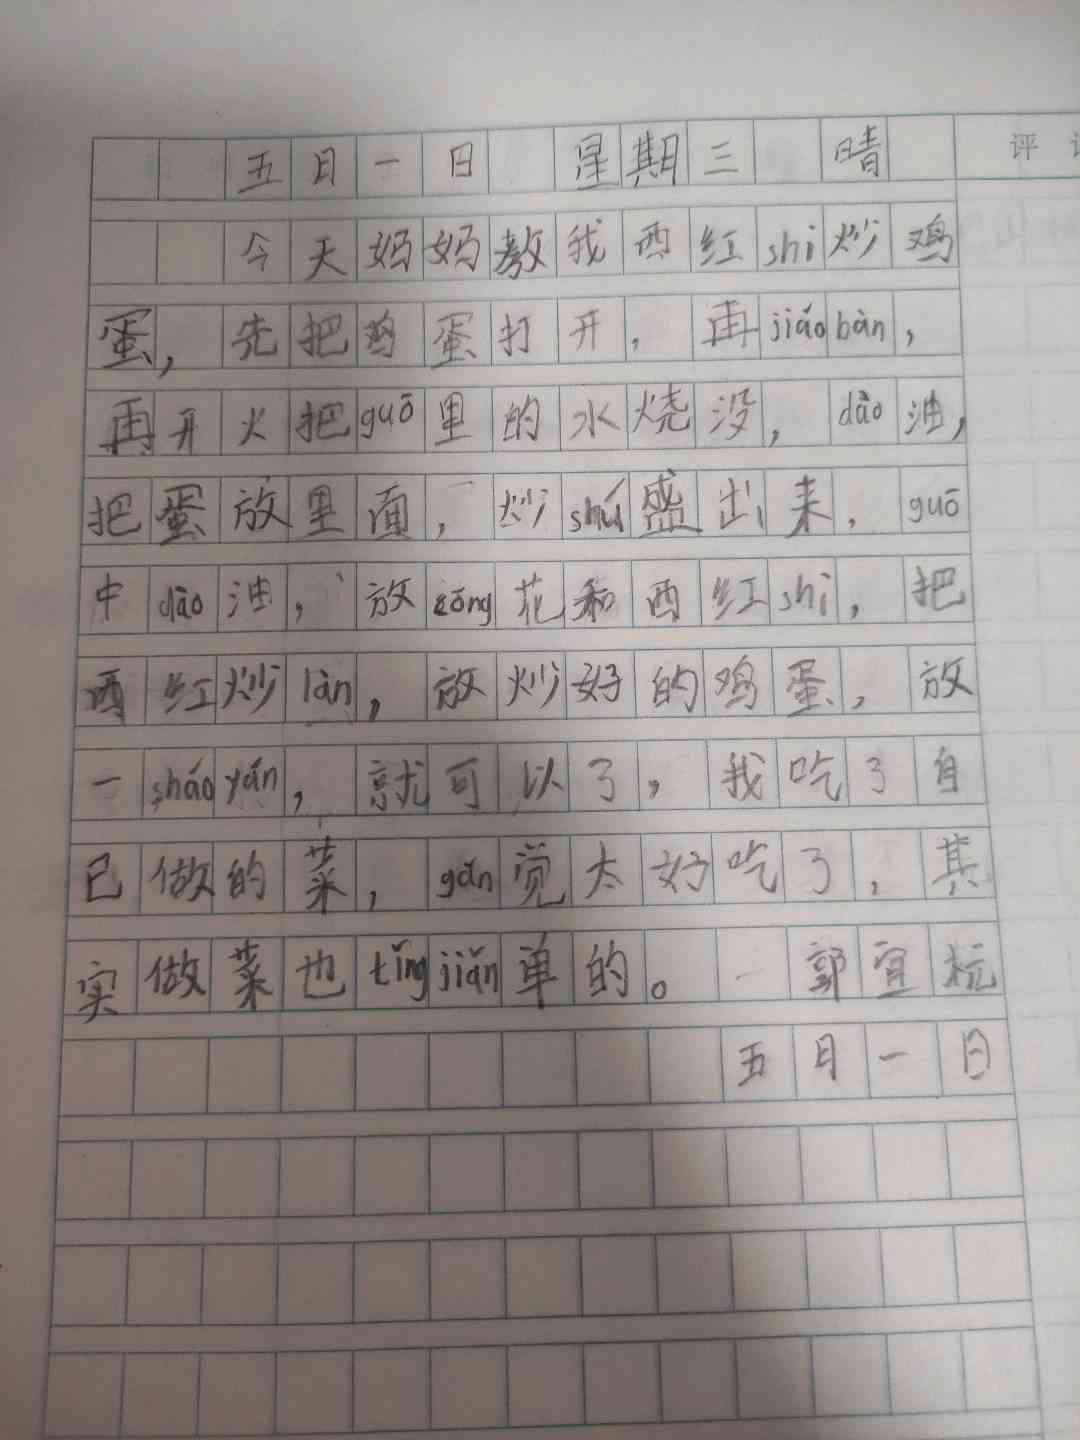 五月一日 星期三 晴
评
今天妈妈教我西红shi炒鸡
蛋，先把鸡蛋打开，再jiǎobàn，
再开火把guō里的水烧没，dào油，
把蛋放里面，炒shú盛出来，guō
中dào油，放cōng花和西红shì，把
西红炒làn，放炒好的鸡蛋，放
一sháoyán，就可以了，我吃了自
己做的菜，gǎn觉太好吃了，其
实做菜也tǐngjiǎn单的。郭宜杭
五月一日